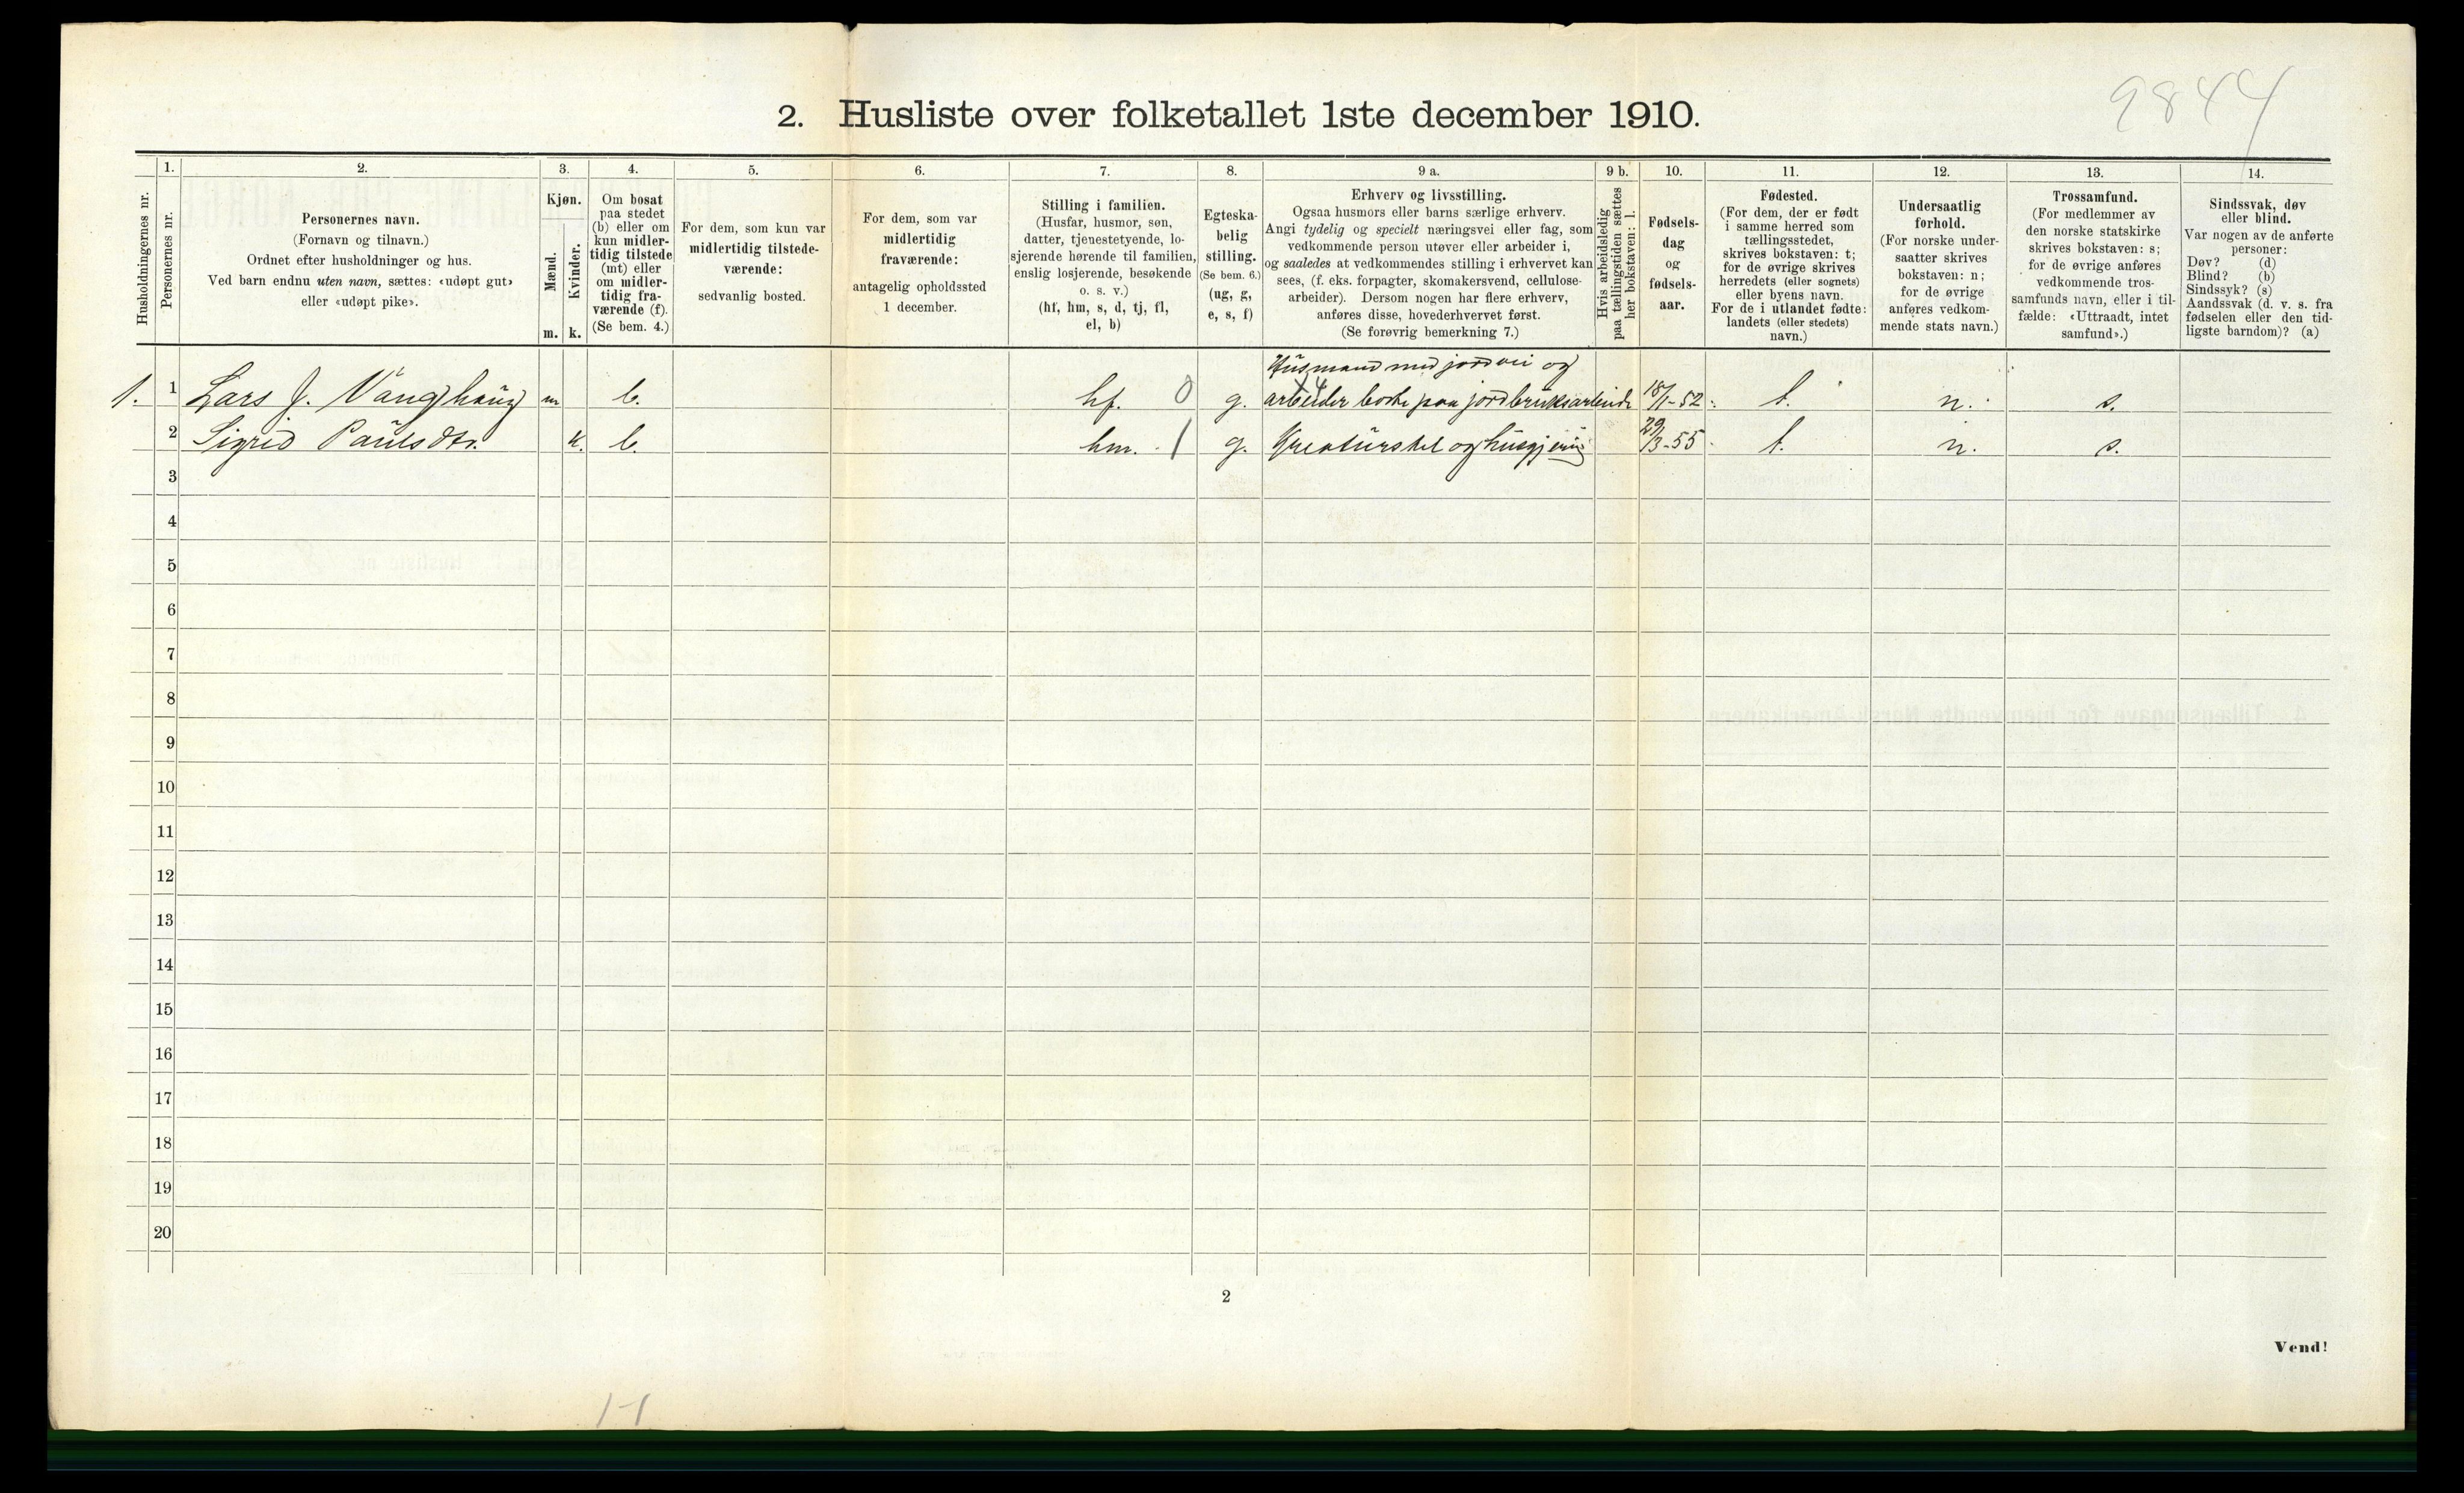 9844
2. Husliste over folketallet 1ste december 1910.
Husholdningernes nr.
1.
Personernes nr.
2.
Personernes navn.
(Fornavn og tilnavn.)
Ordnet efter husholdninger og hus.
Ved barn endnu uten navn, sættes: «udøpt gut»
eller «udøpt pike».
3.
Kjøn.
Mænd.
m.
Kvinder.
k.
4.
Om bosat
paa stedet
(b) eller om
kun midler-
tidig tilstede
(mt) eller
om midler-
tidig fra-
værende (f).
(Se bem. 4.)
5.
For dem, som kun var
midlertidig tilstede-
værende:
sedvanlig bosted.
6.
For dem, som var
midlertidig
fraværende:
antagelig opholdssted
1 december.
7.
Stilling i familien.
(Husfar, husmor, søn,
datter, tjenestetyende, lo-
sjerende hørende til familien,
enslig losjerende, besøkende
o. s. v.)
(hf, hm, s, d, tj, fl,
el, b)
8.
Egteska-
belig
stilling.
(Se bem. 6.)
(ug, g,
e, s, f)
9 a.
Erhverv og livsstilling.
Ogsaa husmors eller barns særlige erhverv.
Angi tydelig og specielt næringsvei eller fag, som
vedkommende person utøver eller arbeider i,
og saaledes at vedkommendes stilling i erhvervet kan
sees, (f. eks. forpagter, skomakersvend, cellulose-
arbeider). Dersom nogen har flere erhverv,
anføres disse, hovederhvervet først.
(Se forøvrig bemerkning 7.)
9 b.
Hvis arbeidsledig
paa tællingstiden sættes
her bokstaven: l.
10.
Fødsels-
dag
og
fødsels-
aar.
11.
Fødested.
(For dem, der er født
i samme herred som
tællingsstedet,
skrives bokstaven: t;
for de øvrige skrives
herredets (eller sognets)
eller byens navn.
For de i utlandet fødte:
landets (eller stedets)
navn.)
12.
Undersaatlig
forhold.
(For norske under-
saatter skrives
bokstaven: n;
for de øvrige
anføres vedkom-
mende stats navn.)
13.
Trossamfund.
(For medlemmer av
den norske statskirke
skrives bokstaven: s;
for de øvrige anføres
vedkommende tros-
samfunds navn, eller i til-
fælde: «Uttraadt, intet
samfund».)
14.
Sindssvak, døv
eller blind.
Var nogen av de anførte
personer:
Døv? (d)
Blind? (b)
Sindssyk? (s)
Aandssvak (d. v. s. fra
fødselen eller den tid-
ligste barndom)? (a)
Husmand med jordvei og
1. 1 Lars J. Vanghaug m b. hf. 0 g. arbeider borte paa jordbruksarbeide 18/1-52 t. n. s.
2 Sigrid Paulsdtr. k. b. hm. 1 g. Kreaturstel og husgjerning 29/3-55 t. n. s.
3
4
5
6
7
8
9
10
11
12
13
14
15
16
17
18
19
20
2
Vend!
1-1